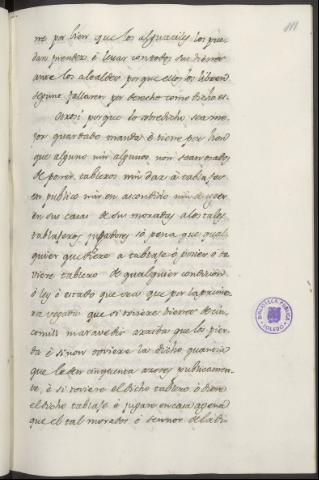 111
me por bien que los alguaciles los pue
dan prender, è levar con todos sus bienes
ante los alcaldes porque ellos los libren
segunt fallaren por derecho como dicho es.
Otrosi porque lo sobredicho sea me
jor guardado mando è tiene por bien
que alguno nin algunos non sean osados
de poner tablero nin dar à tablajes
en publico nin en ascondido nin
en sus casas de sus moradas a los tales
tablajeros, jugadores sò pena que qual
quier que diere a tablaje ò posier ò to
viere tablero de qualquier condicion
ò ley è estado que sea que por la prime
ra vegada que si toviere bienes de
mill maravedis arriba que los pier
da è si non toviere la dicha quantia
que le den cinquenta azotes publicamen
te, è si toviere el dicho tablero ò diere
el dicho tablaje è jugare en casa agena
que el tal morador ò sennor de la di
BIBLIOTECA PUBLICA
TOLEDO